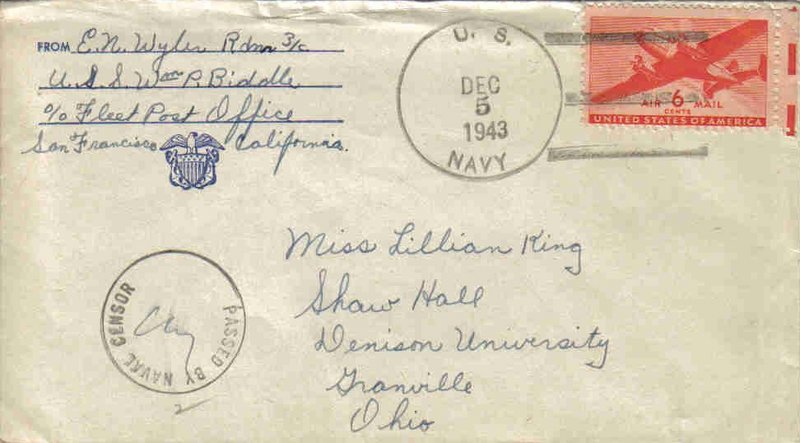 FROM E.N. Wyler Rdm 3/c
U.S.S. Wm P. Biddle
c/o Fleet Post Office
San Francisco California.
U. S.
DEC
5
1943
NAVY
AIR 6 MAIL
CENTS
UNITED STATES OF AMERICA
Miss Lillian King
Shaw Hall
Denison University
Granville
Ohio
PASSED BY NAVAL CENSOR